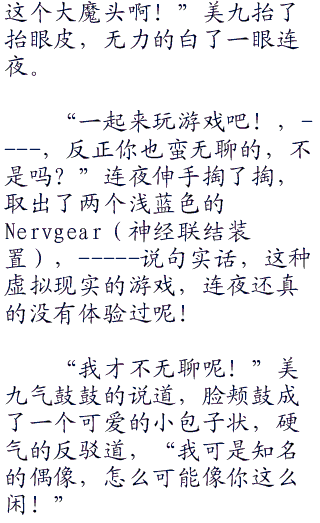 这个大魔头啊！”美九抬了
抬眼皮，无力的白了一眼连
夜。
“一起来玩游戏吧！，-
----，反正你也蛮无聊的，不
是吗？”连夜伸手掏了掏，
取出了两个浅蓝色的
Nervgear（神经联结装
置），-----说句实话，这种
虚拟现实的游戏，连夜还真
的没有体验过呢！
“我才不无聊呢！”美
九气鼓鼓的说道，脸颊鼓成
了一个可爱的小包子状，硬
气的反驳道，“我可是知名
的偶像，怎么可能像你这么
闲！”